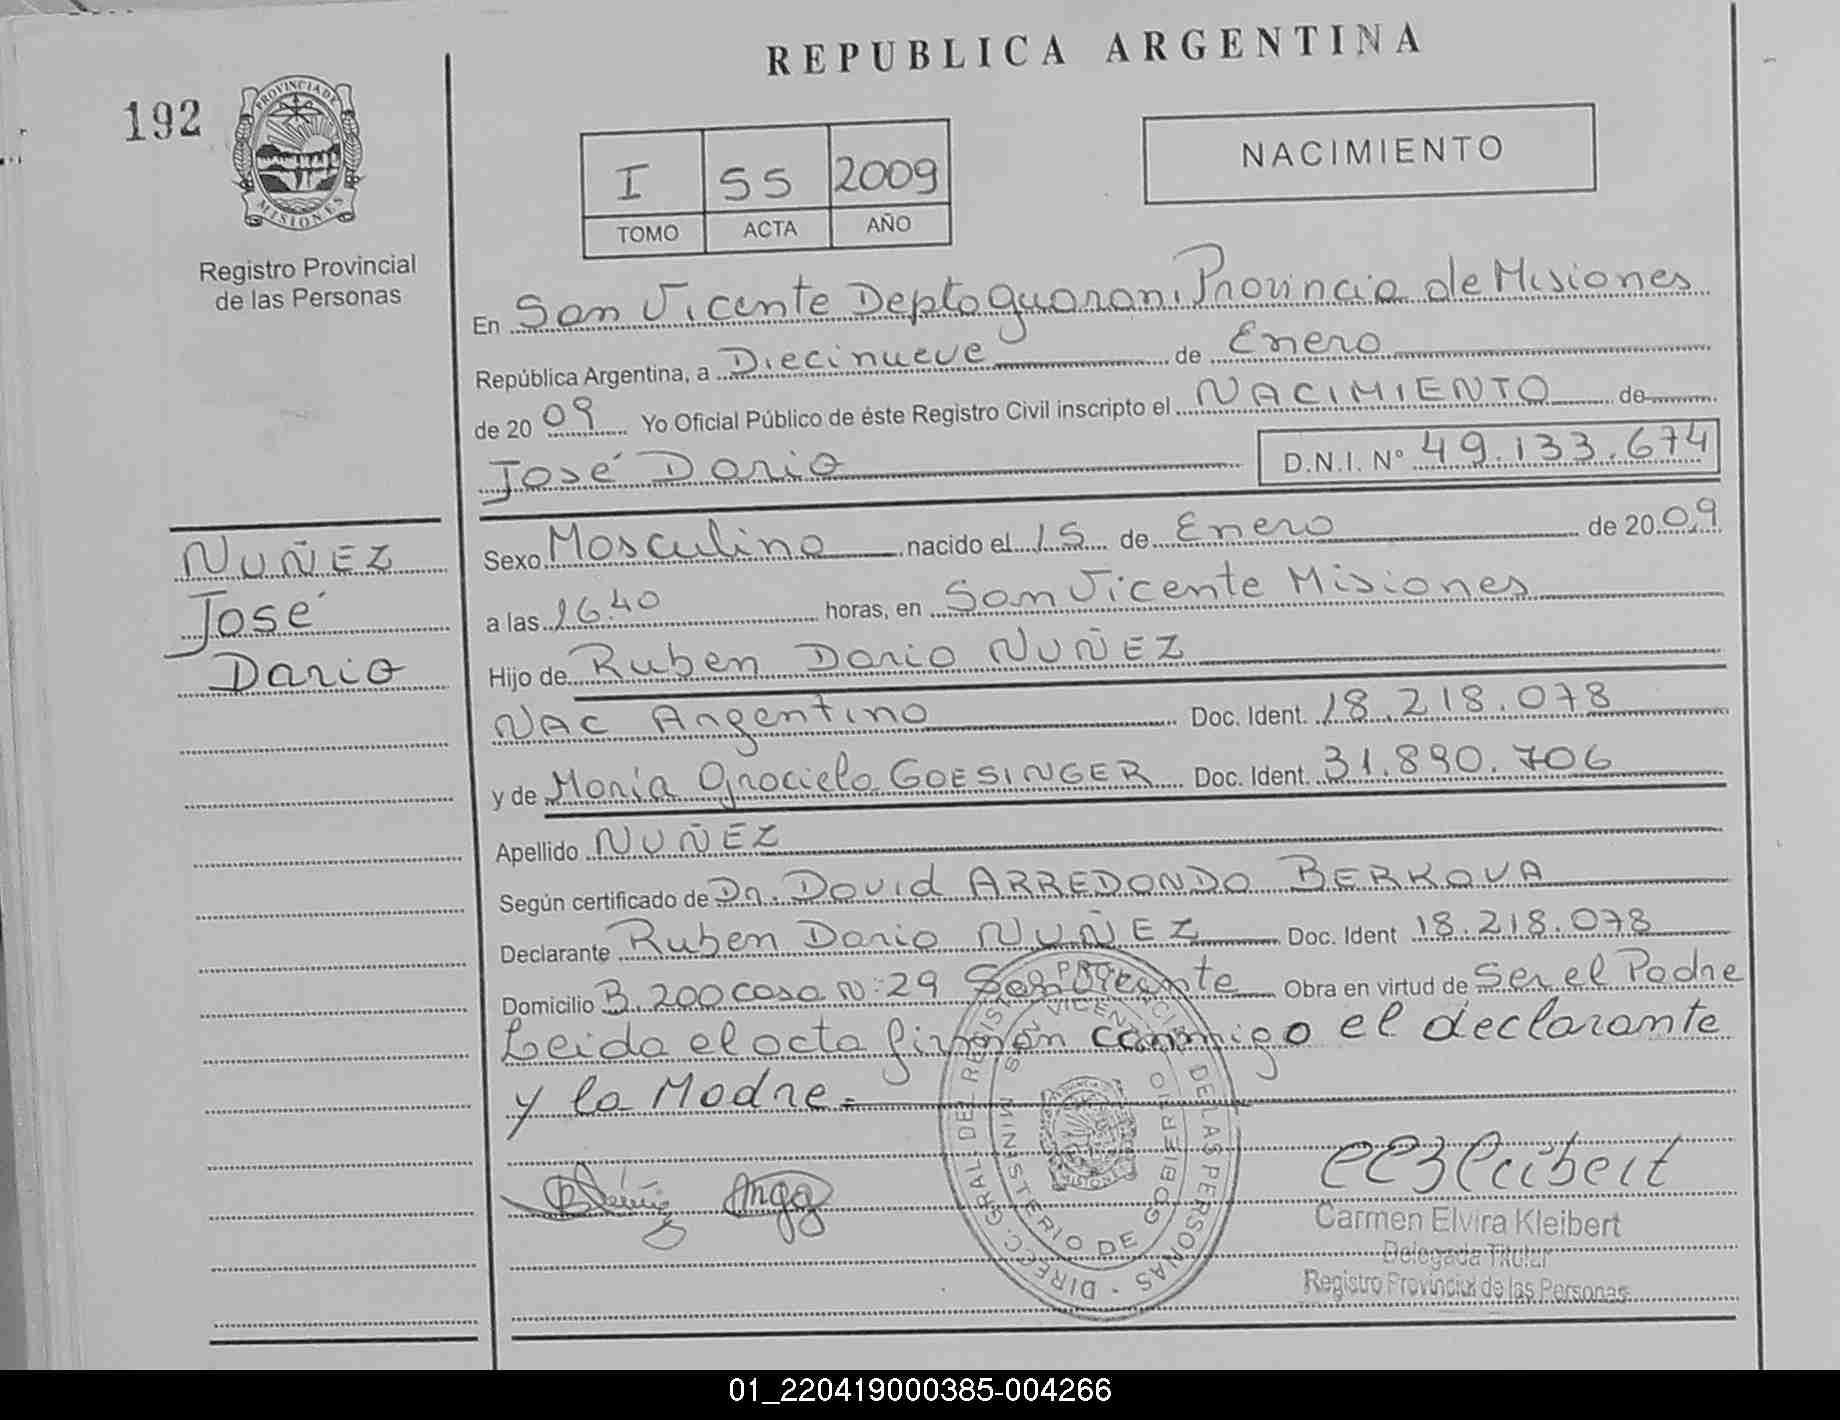 REPUBLICA ARGENTINA
192
PROVINCIA DE
MISIONES
NACIMIENTO
I 55 2009
TOMO ACTA AÑO
Registro Provincial
de las Personas
En San Vicente Depto guarani Provincia de Misiones
República Argentina, a Diecinueve de Enero
de 20 09 Yo Oficial Público de éste Registro Civil inscripto el NACIMIENTO de
José Dario D.N.I. Nº 49.133.674
NUÑEZ
José
Dario
Sexo Masculino nacido el 15 de Enero de 20 09
a las 16.40 horas, en San Vicente Misiones
Hijo de Ruben Dario NUÑEZ
NAC Argentino Doc. Ident. 18.218.078
y de Maria Graciela GOESINGER Doc. Ident. 31.890.706
Apellido NUÑEZ
Según certificado de Dr. David ARREDONDO BERKOVA
Declarante Ruben Dario NUÑEZ Doc. Ident 18.218.078
Domicilio B. 200 casa N: 29 San Vicente Obra en virtud de Ser el Padre
Leida el acta firman conmigo el declarante
y la Madre.=
DIRECC. GRAL. DEL REGISTRO PROVINCIAL DE LAS PERSONAS
SAN VICENTE
MINISTERIO DE GOBIERNO
Carmen Elvira Kleibert
Delegada Titular
Registro Provincial de las Personas
01_220419000385-004266